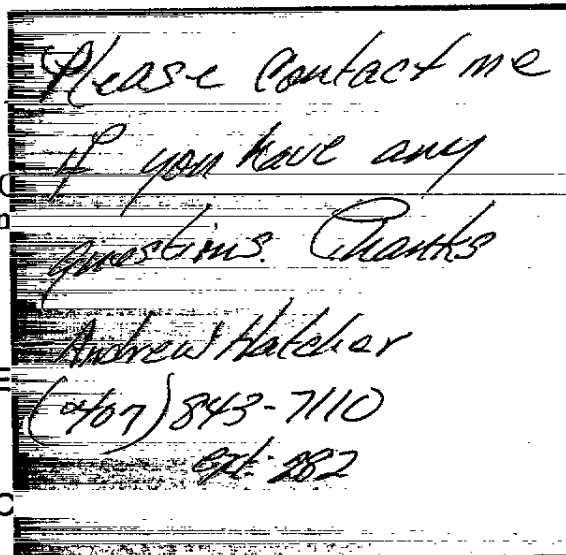 Please contact me
if you have any
questions. Thanks
Andrew Hatcher
(407) 843-7110
ext: 282